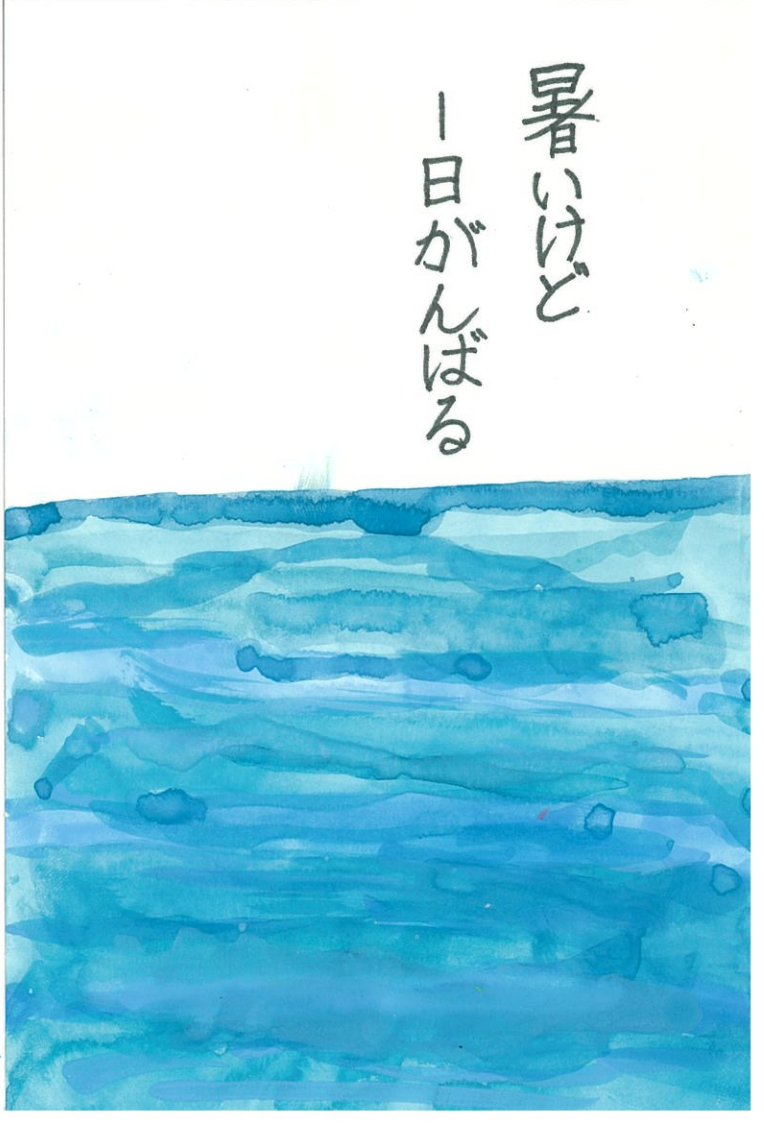 暑いけど
一日がんばる